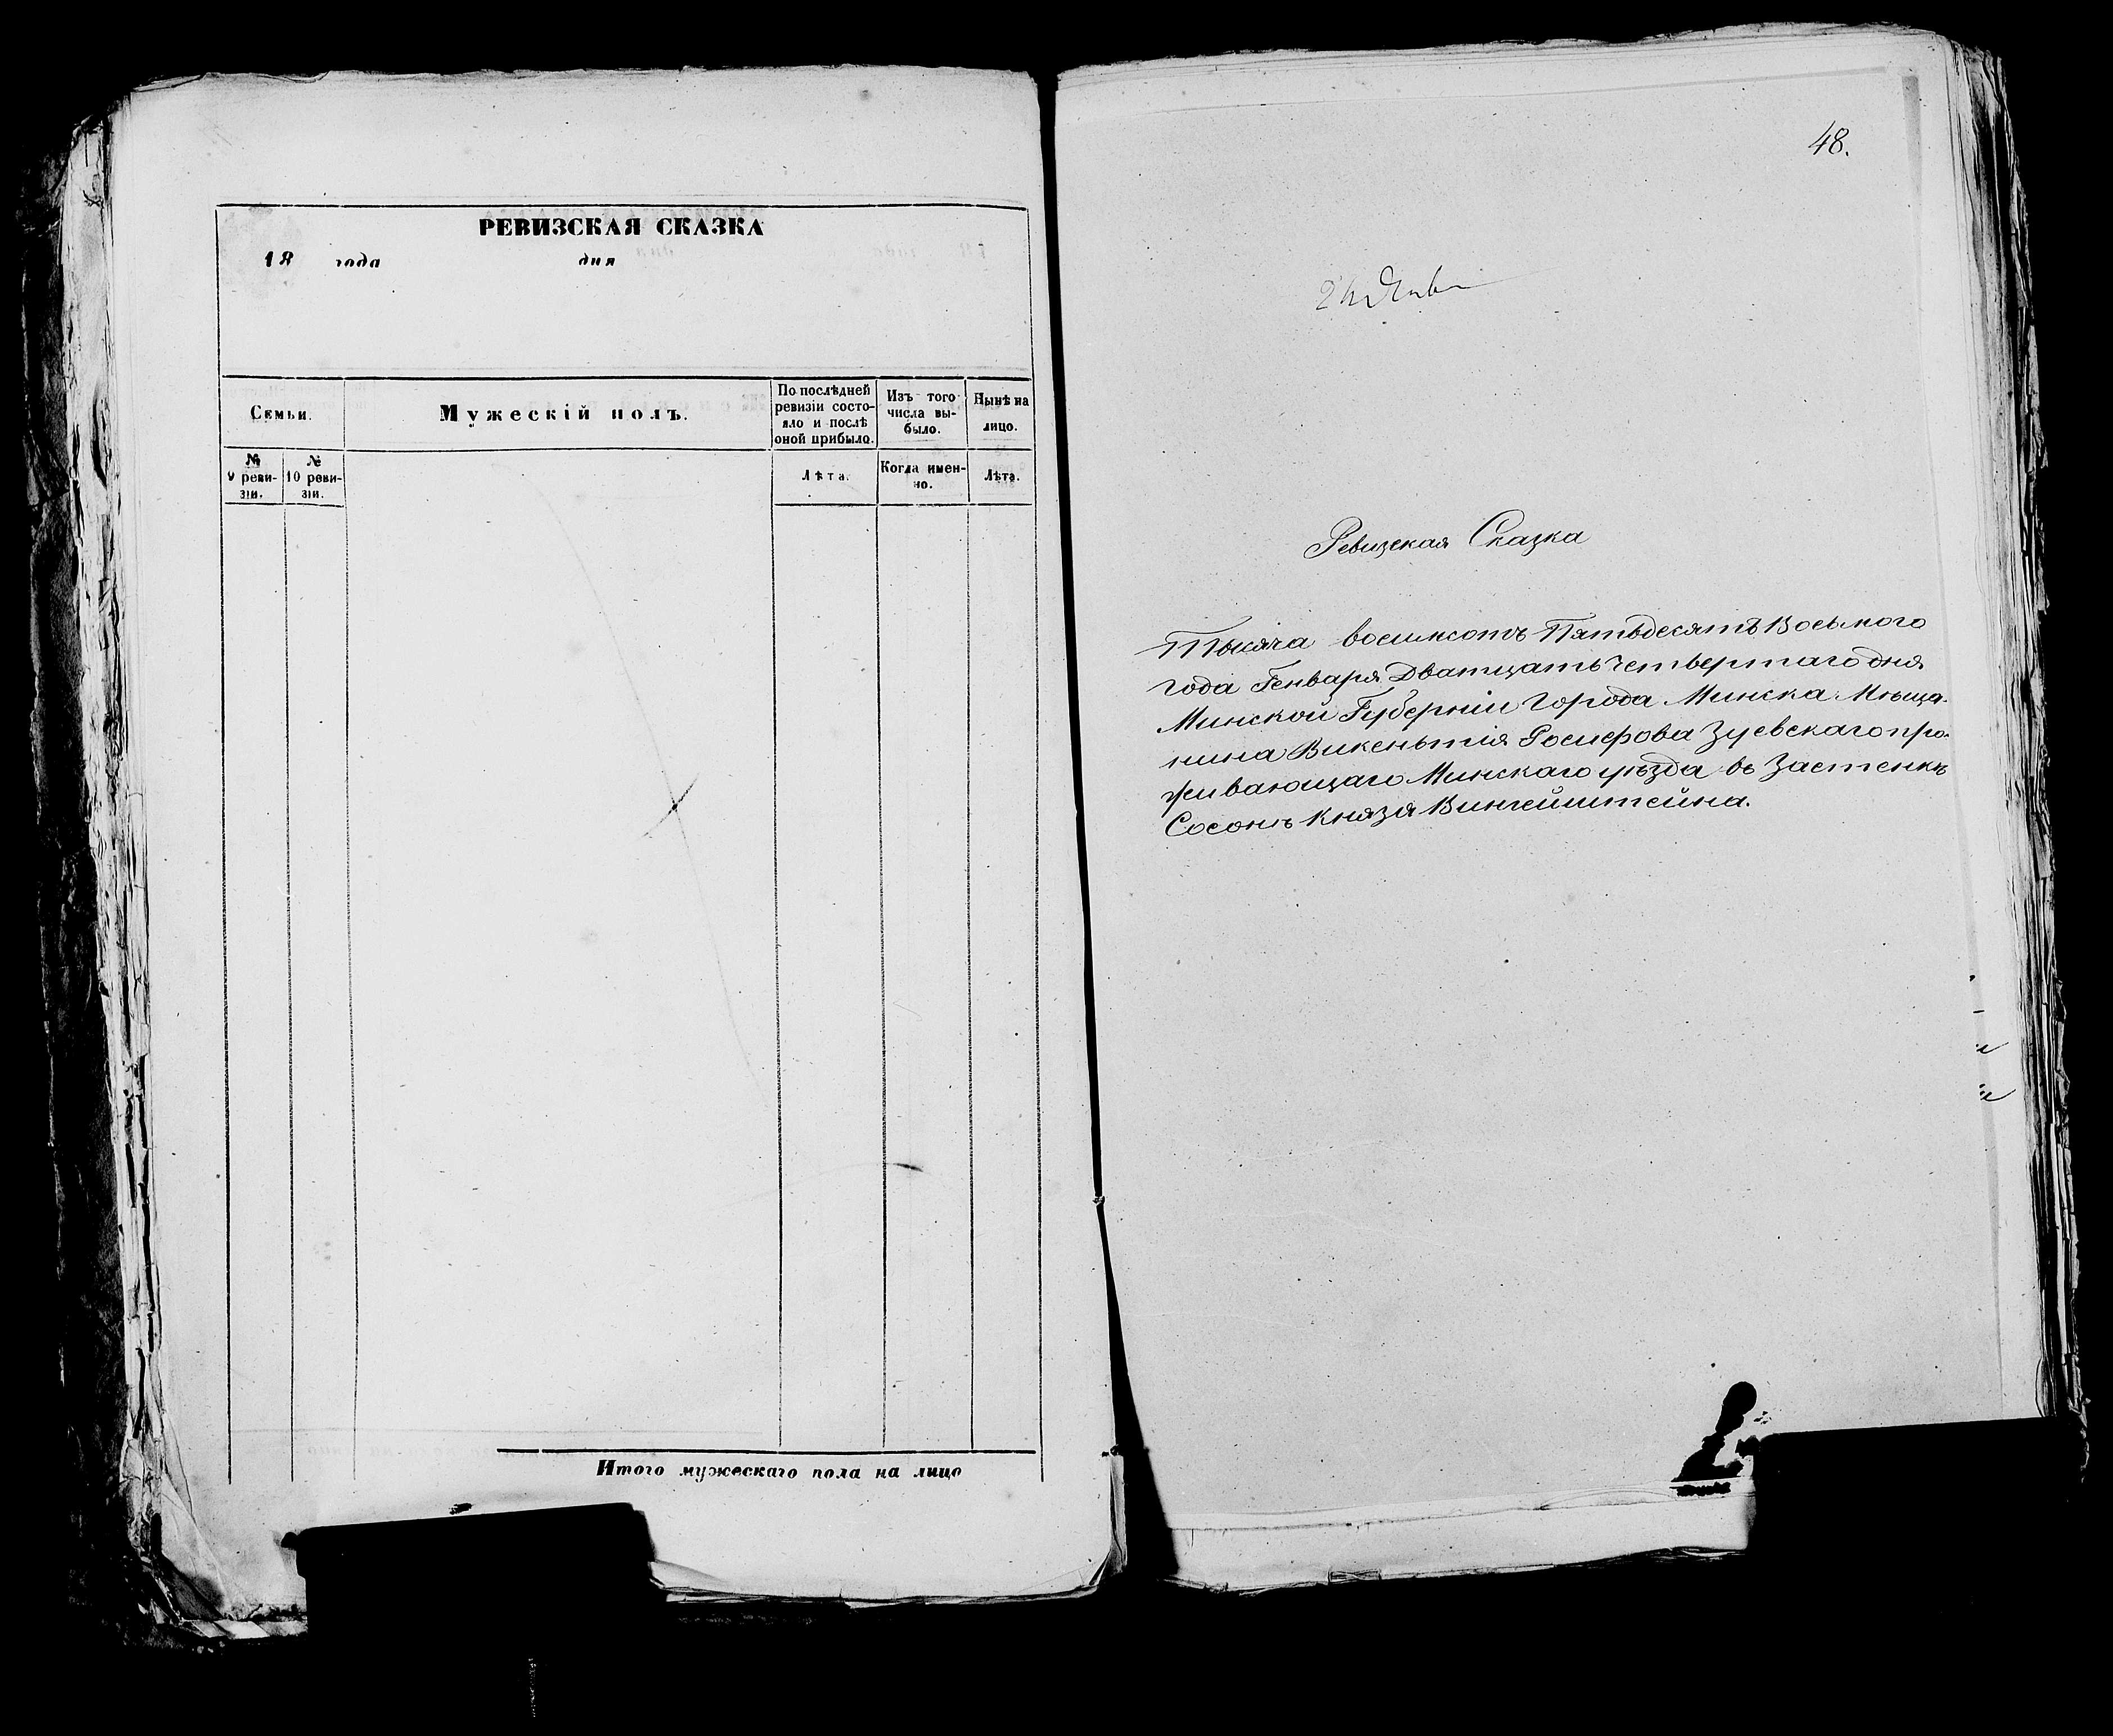 РЕВИЗСКАЯ СКАЗКА
18 года дня
Семьи.
Мужескій полъ.
По послѣдней
ревизіи состо-
яло и послѣ
оной прибыло.
Изъ того
числа вы-
было.
Нынѣ на
лицо.
№
9 реви-
зіи.
№
10 реви-
зіи.
Лѣта.
Когда имен-
но.
Лѣта.
Итого мужескаго пола на лицо
48.
Ревизская Сказка
Тысяча восимсотъ Пятьдесятъ Восьмого
года Генваря Дватцать Четвертаго дня
Минской Губерніи Города Минска Мѣща-
нина Викентія Іосифова Зуевскаго про-
живающаго Минскаго уѣзда въ Застенкѣ
Сосонъ Князя Вингейштейна.